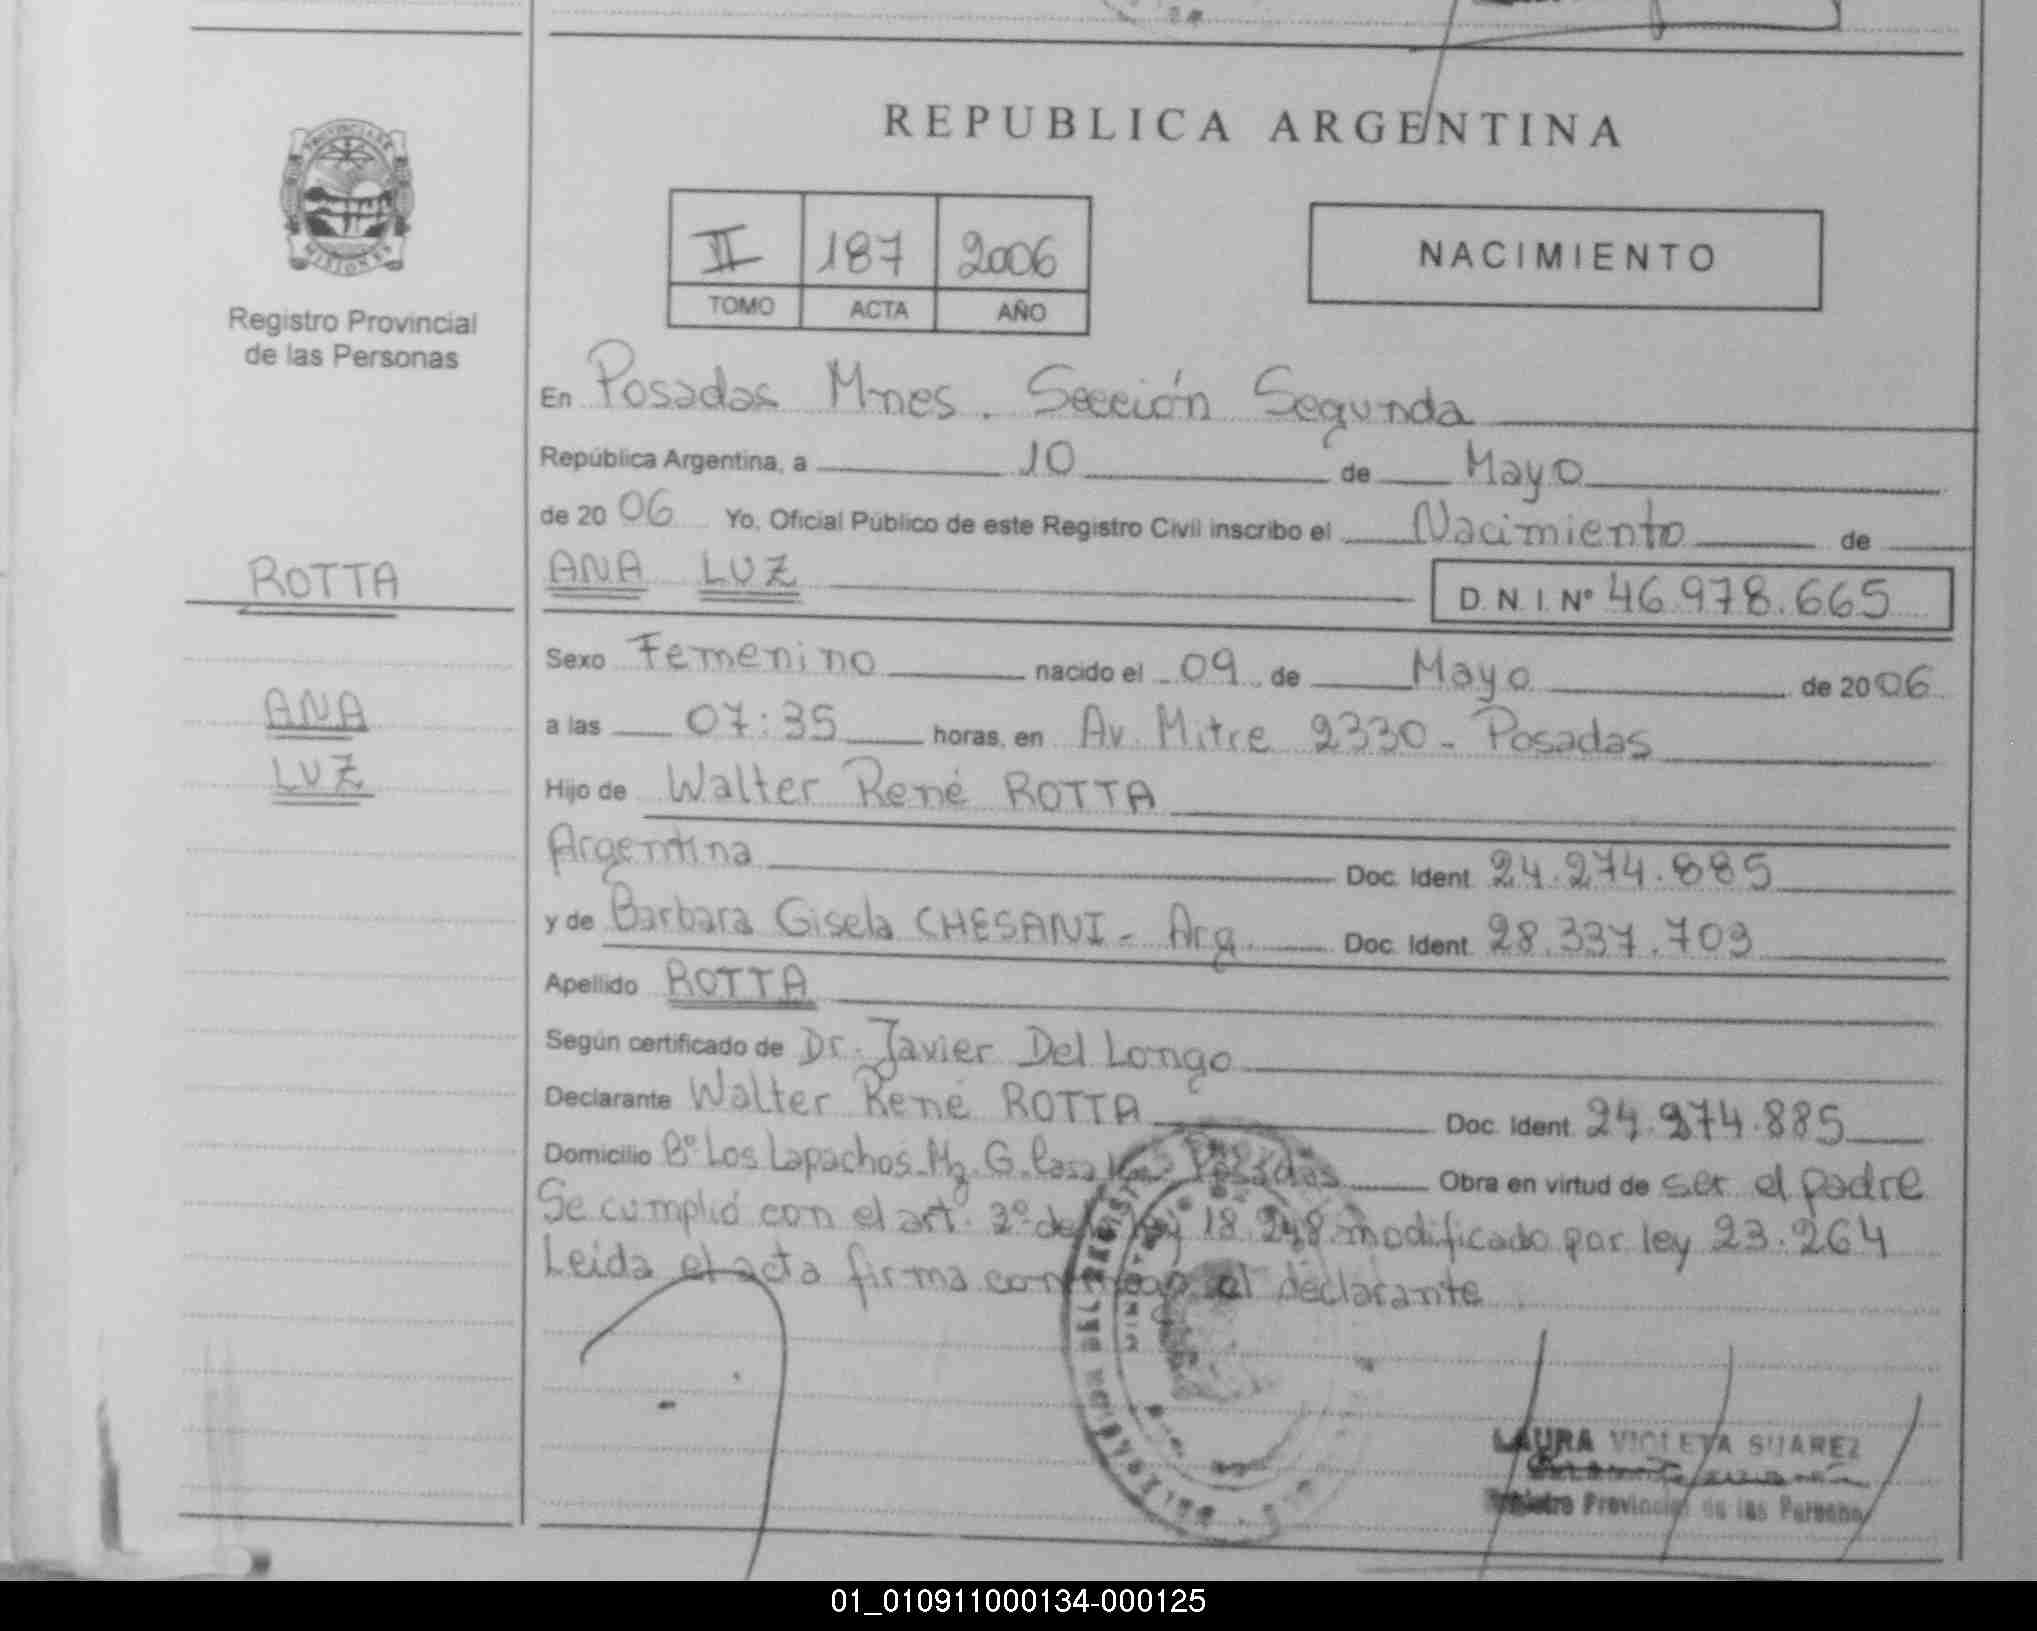 REPUBLICA ARGENTINA
PROVINCIA DE
MISIONES
Registro Provincial
de las Personas
II 187 2006
TOMO ACTA AÑO
NACIMIENTO
En Posadas Mnes. Sección Segunda
República Argentina, a 10 de Mayo
de 2006 Yo, Oficial Público de este Registro Civil inscribo el Nacimiento de
ROTTA
ANA LUZ D.N.I. Nº 46.978.665
Sexo Femenino nacido el 09 de Mayo de 2006
ANA
LUZ
a las 07:35 horas, en Av. Mitre 2330 - Posadas
Hijo de Walter René ROTTA
Argentina Doc. Ident. 24.274.885
y de Barbara Gisela CHESANI - Arg Doc. Ident. 28.337.703
Apellido ROTTA
Según certificado de Dr. Javier Del Longo
Declarante Walter René ROTTA Doc. Ident. 24.274.885
Domicilio Bº Los Lapachos. Mz. G. Casa Posadas Obra en virtud de ser el padre
Se cumplió con el art. 2º de la ley 18.248 modificado por ley 23.264
Leida el acta firma conmigo el declarante
LAURA VIOLETA SUAREZ
Registro Provincial de las Personas
01_010911000134-000125